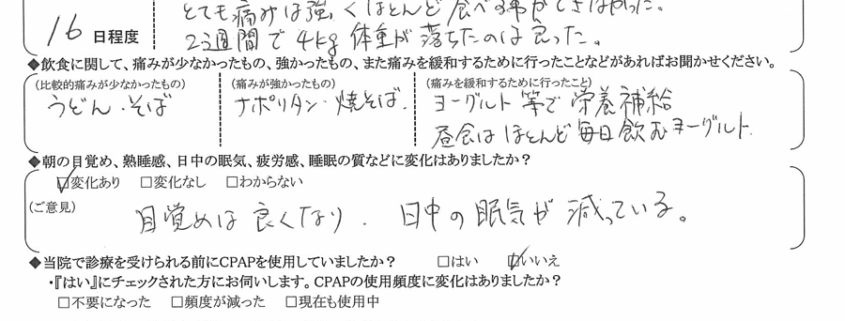 とても痛みは強くほとんど食べる事ができなかった。
16 日程度
2週間で4kg体重が落ちたのは良った。
◆飲食に関して、痛みが少なかったもの、強かったもの、また痛みを緩和するために行ったことなどがあればお聞かせください。
(比較的痛みが少なかったもの) (痛みが強かったもの) (痛みを緩和するために行ったこと)
うどん・そば ナポリタン・焼そば. ヨーグルト等で栄養補給
昼食はほとんど毎日飲むヨーグルト
◆朝の目覚め、熟睡感、日中の眠気、疲労感、睡眠の質などに変化はありましたか?
☑変化あり □変化なし □わからない
(ご意見)
目覚めは良くなり. 日中の眠気が減っている。
◆当院で診療を受けられる前にCPAPを使用していましたか? □はい ☑いいえ
・『はい』にチェックされた方にお伺いします。CPAPの使用頻度に変化はありましたか?
□不要になった □頻度が減った □現在も使用中